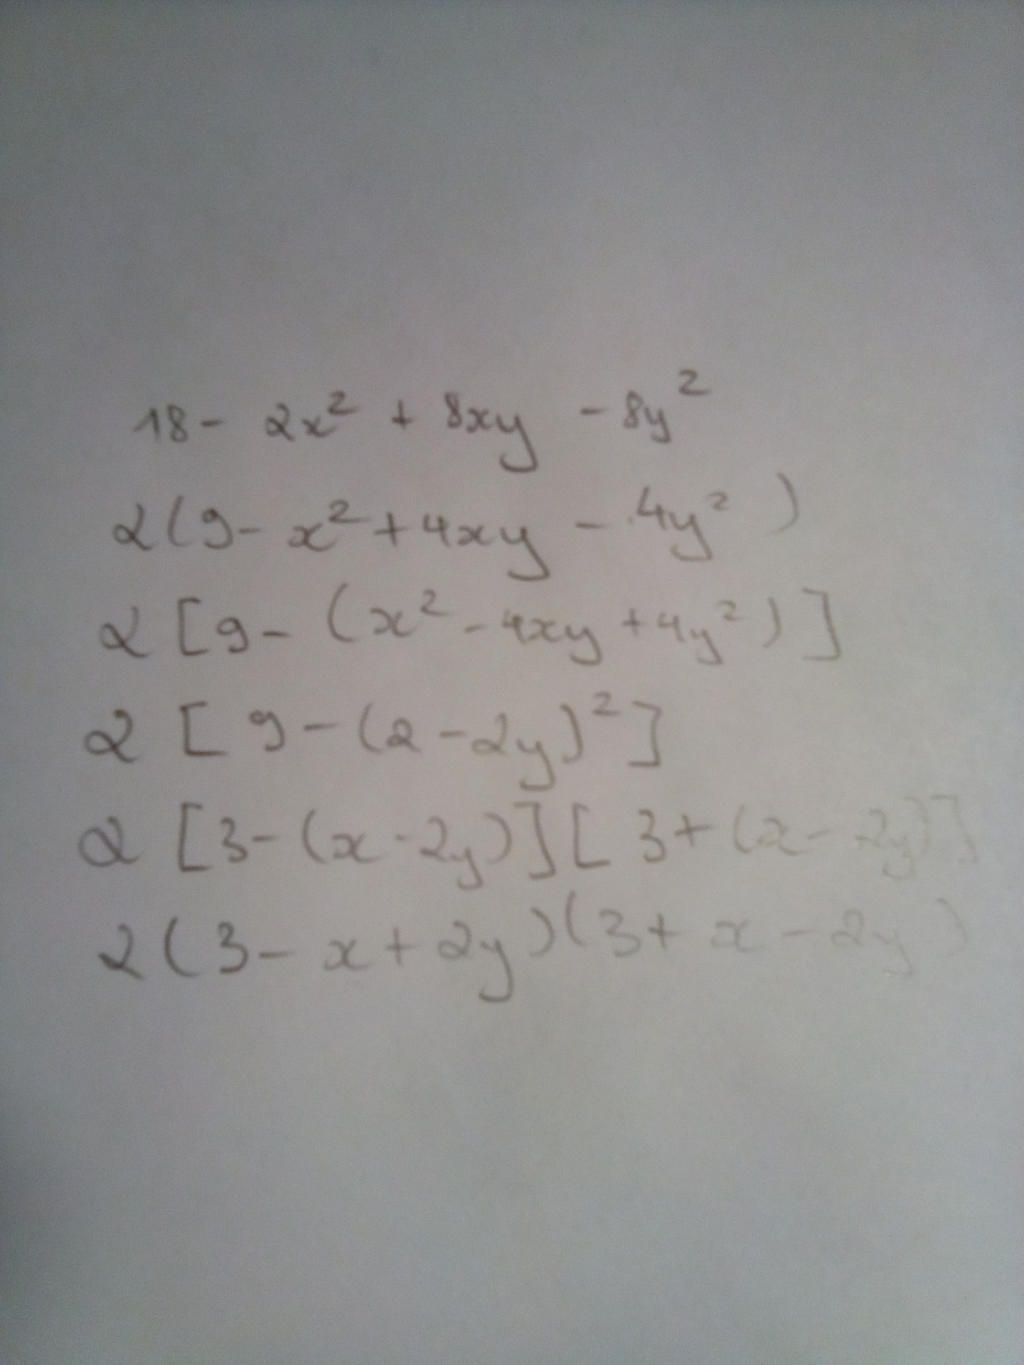 18 - 2x² + 8xy - 8y²
2(9 - x² + 4xy - 4y²)
2 [9 - (x² - 4xy + 4y²)]
2 [9 - (2 - 2y)²]
2 [3 - (x - 2y)][3 + (x - 2y)]
2(3 - x + 2y)(3 + x - 2y)